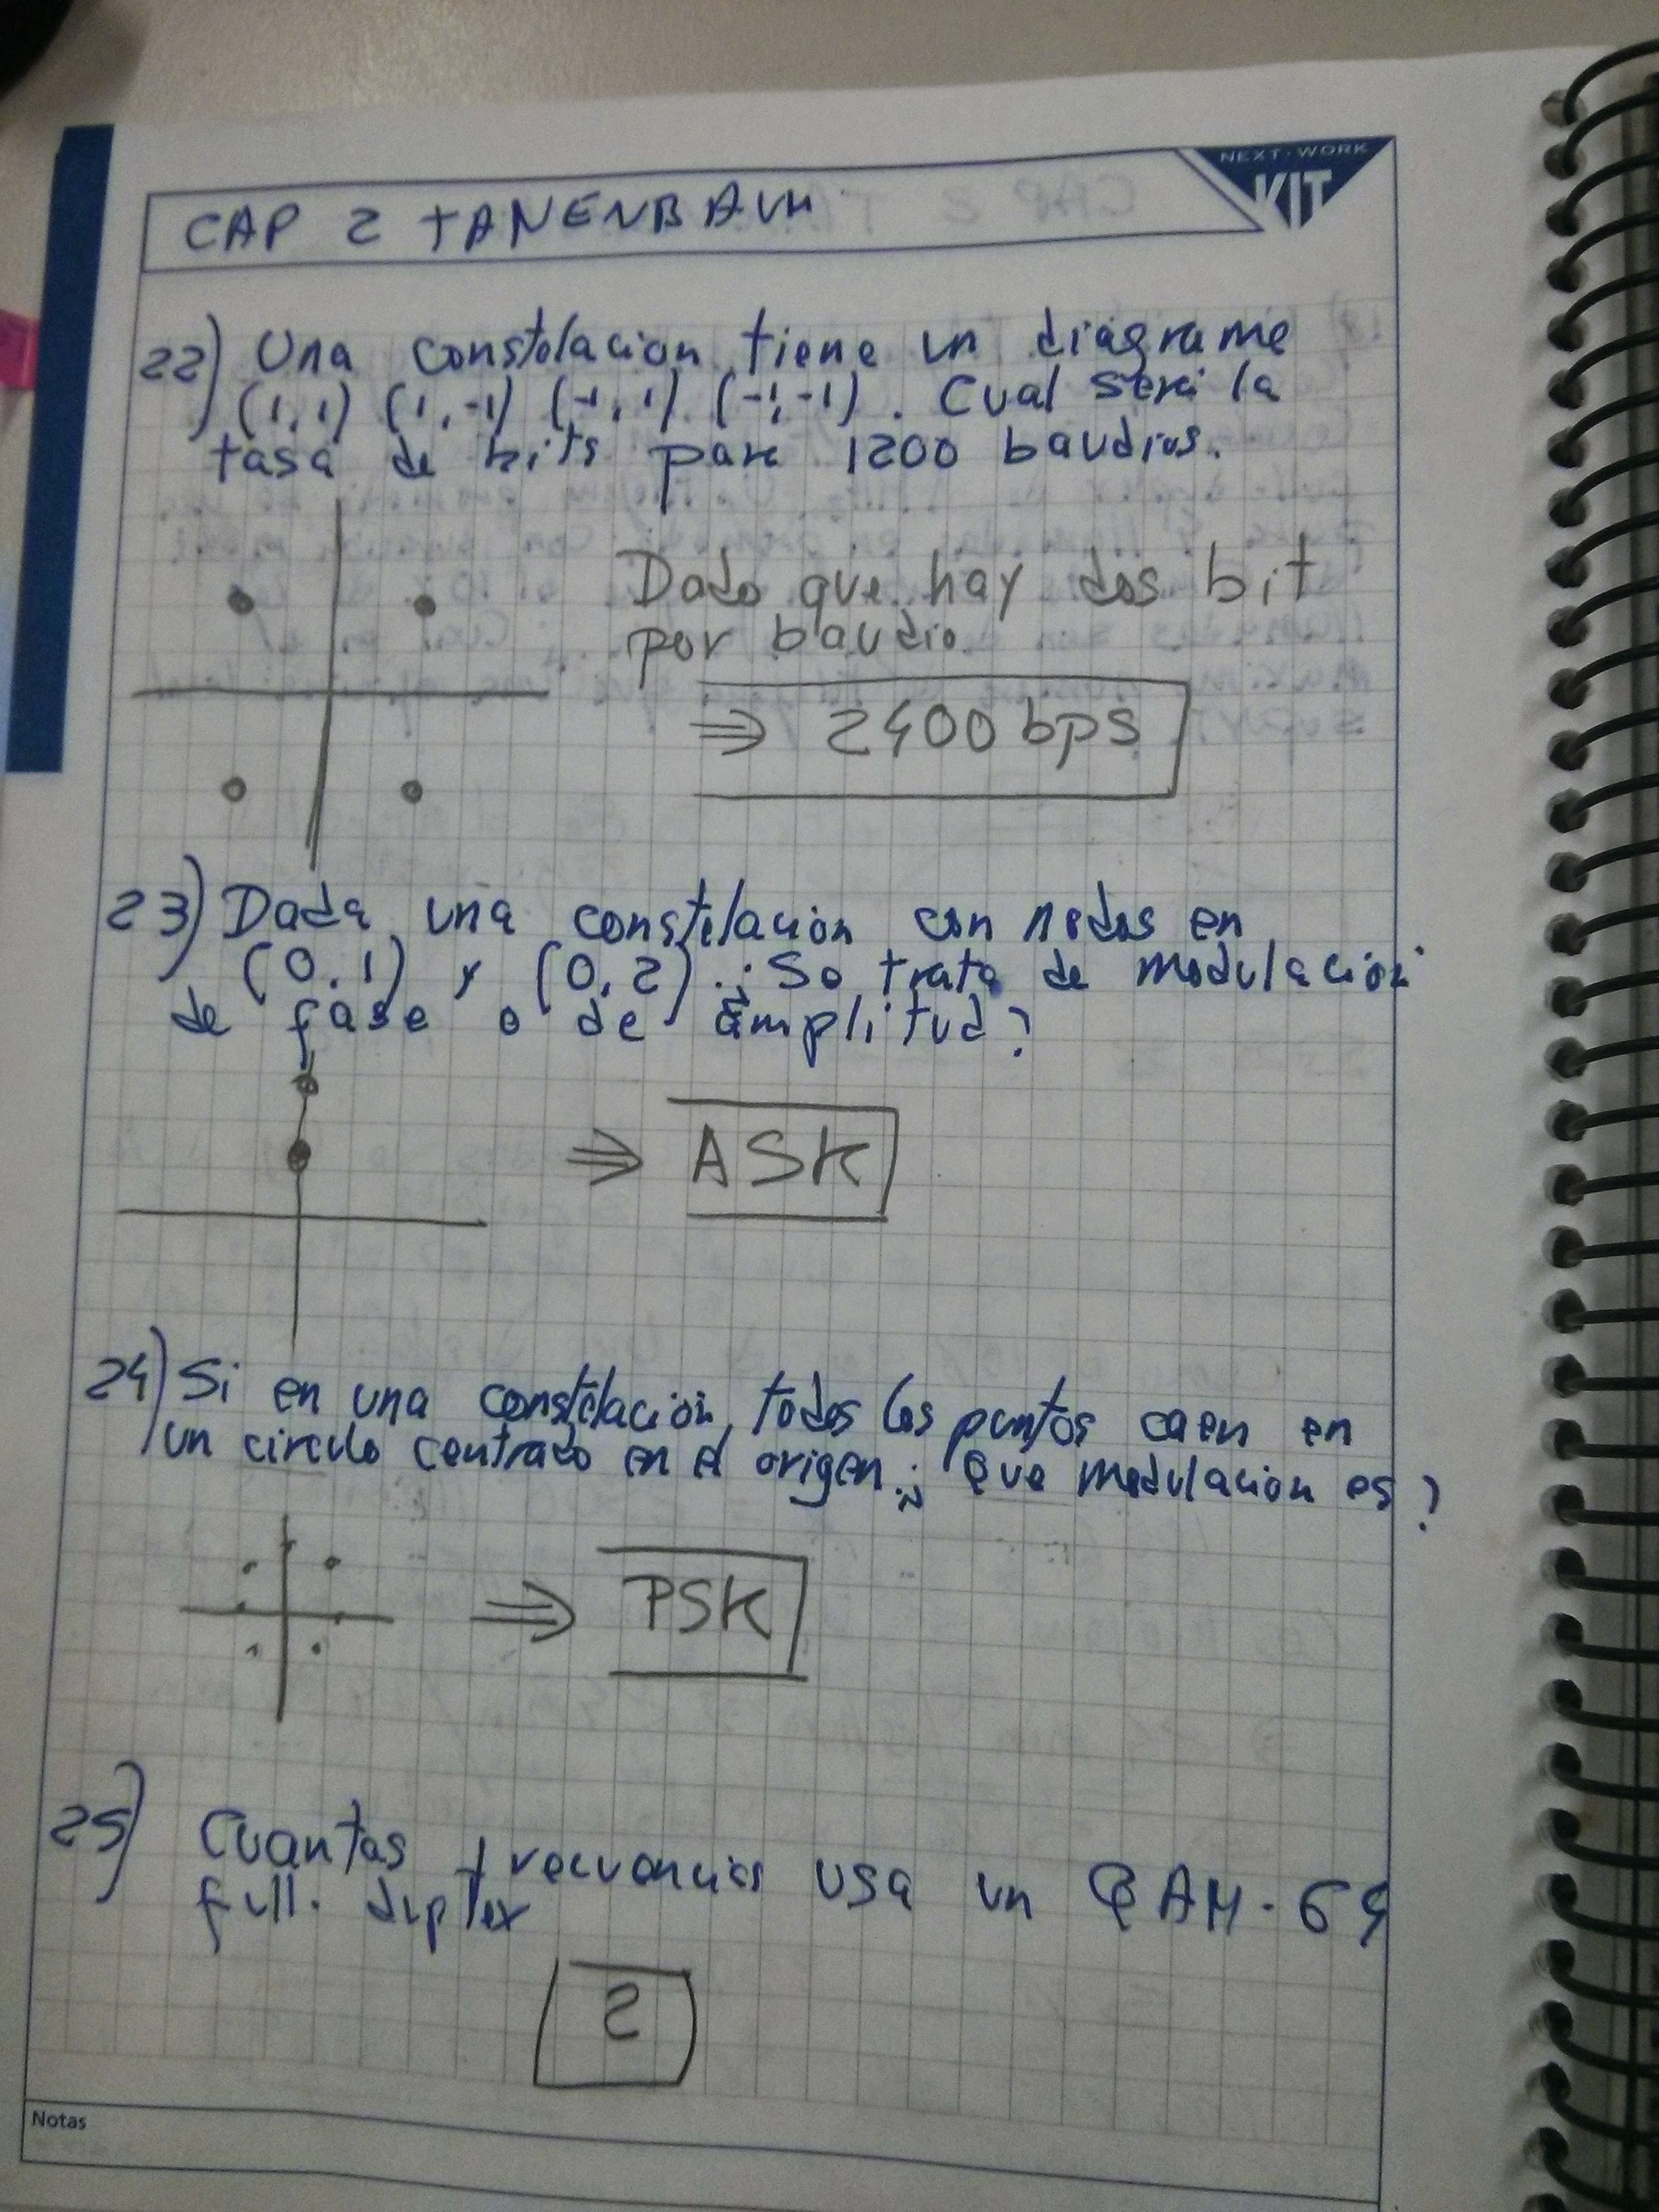 NEXT·WORK
KIT
CAP 2 TANENBAUM
22) Una constelacion tiene un diagrama
(1,1) (1,-1) (-1,1) (-1,-1). Cual será la
tasa de bits para 1200 baudios.
Dado que hay dos bit
por baudio.
⇒ 2400 bps
23) Dada una constelación con nodos en
(0,1) y (0,2). ¿Se trata de modulación
de fase o de amplitud?
⇒ ASK
24) Si en una constelación, todos los puntos caen en
un circulo centrado en el origen ¿Que modulación es?
⇒ PSK
25) Cuantas frecuencias usa un QAM-64
full. duplex
2
Notas